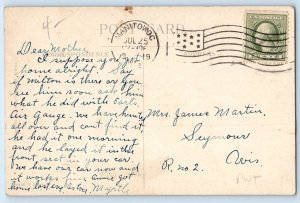 4
POST CARD
MANITOWOC
JUL 25
19
CORRESPONDENCE
Dear Mother,
I suppose you got
home alright. Say
if Milton is there or you
see him soon ask him
what he did with Earls
Air Gauge. We have hunt
all over and cant find it
he had it one morning
and he layed it in the
front seat in your car.
We have our car now and
it works fine. Annie got
home last eve. Myrtle
Mrs. James Martin,
Seymour
R. no 2. Wis.